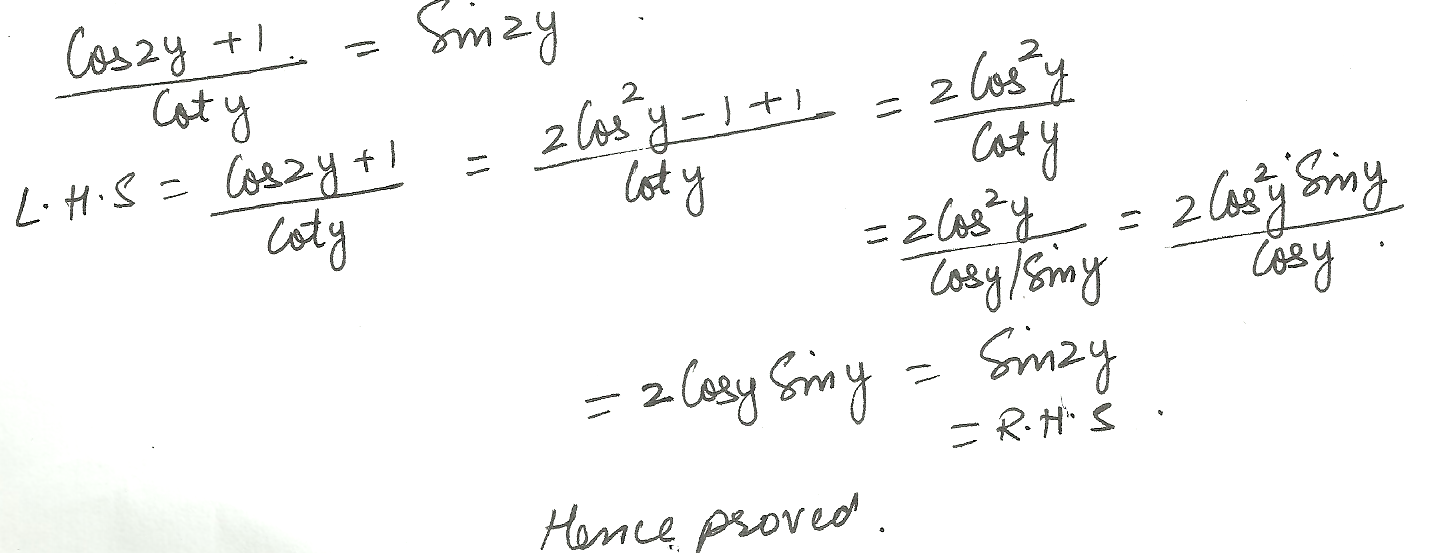 (Cos2y + 1)/Cot y = Sin2y
L.H.S = (Cos2y + 1)/Coty = (2Cos²y - 1 + 1)/Cot y = 2Cos²y/Cot y
= 2Cos²y/(Cosy/Siny) = 2Cos²y Siny/Cosy.
= 2Cosy Siny = Sin2y
= R.H.S.
Hence proved.